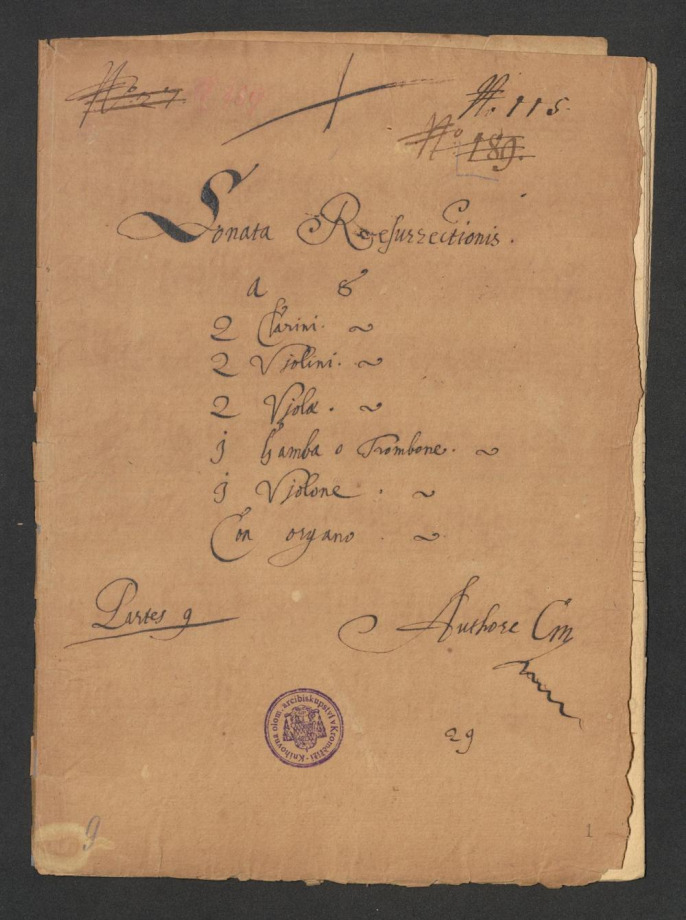 N° 27
N. 115.
N° 189.
Sonata Resurrectionis.
a 8
2 Clarini. ~
2 Violini. ~
2 Violæ. ~
j Gamba o Trombone. ~
j Violone. ~
Con organo. ~
Partes 9
Authore
Knihovna olom. arcibiskupství v Kroměříži
29
9
1